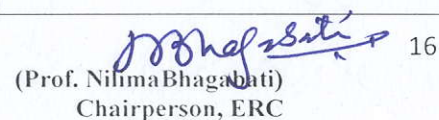 16
(Prof. NilimaBhagabati)
Chairperson, ERC